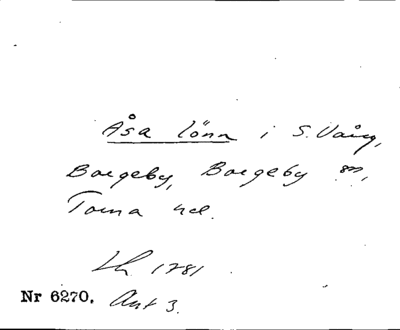 Åsa lönn i S. Vång,
Borgeby, Borgeby sn,
Torna hd.
Lh 1781
Nr 6270. Avt 3.